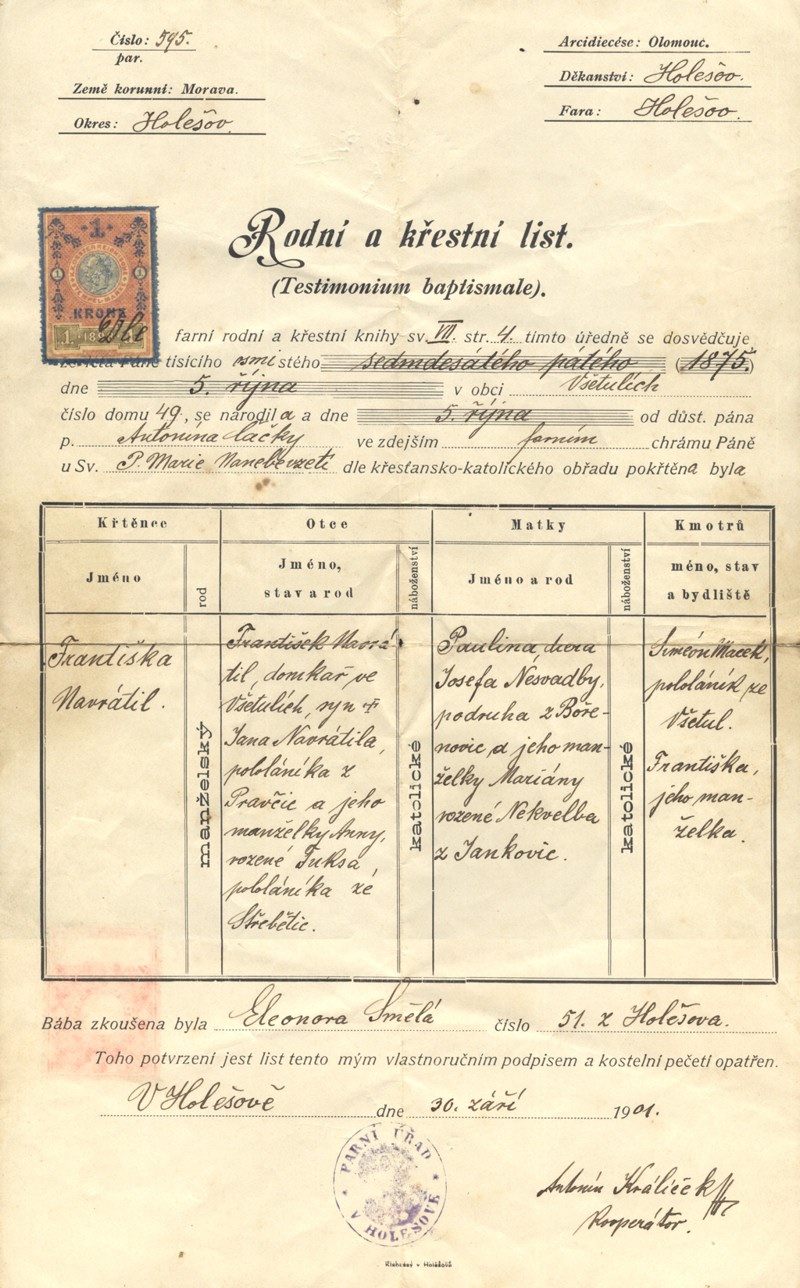 Číslo: 595.
par.
Země korunní: Morava.
Okres: Holešov.
Arcidiecése: Olomouc.
Děkanství: Holešov.
Fara: Holešov.
1
1 1
KRONE
1
Rodní a křestní list.
(Testimonium baptismale).
Dle farní rodní a křestní knihy sv. VII. str. 4. tímto úředně se dosvědčuje
Páně tisícího osmi stého sedmdesátého pátého (1875.)
dne 5. října v obci Všetulích
číslo domu 49, se narodila a dne 5. října od důst. pána
p. Antonína Lačky ve zdejším farním chrámu Páně
u Sv. P. Marie Nanebevzetí dle křesťansko-katolického obřadu pokřtěna byla
Křtěnce
Jméno
rod
Františka
Navrátil.
manželský
Otce
Jméno,
stav a rod
náboženství
František Navrá-
til, domkař ve
Všetulích, syn †
Jana Navrátila,
pololáníka z
Pravčic a jeho
manželky Anny,
rozené Tuksa,
pololáníka ze
Střebětic.
katolické
Matky
Jméno a rod
náboženství
Paulina, dcera
Josefa Nesvadby,
podruha z Boře-
novic a jeho man-
želky Mariány
rozené Nekvelba
z Jankovic.
katolické
Kmotrů
méno, stav
a bydliště
Simeón Macek,
pololáník ze
Všetul.
Františka,
jeho man-
želka.
Bába zkoušena byla Eleonora Smělá číslo 51. z Holešova.
Toho potvrzení jest list tento mým vlastnoručním podpisem a kostelní pečetí opatřen.
V Holešově dne 30. září 1901.
FARNÍ ÚŘAD
V HOLEŠOVĚ
Antonín Králíček
kooperátor.